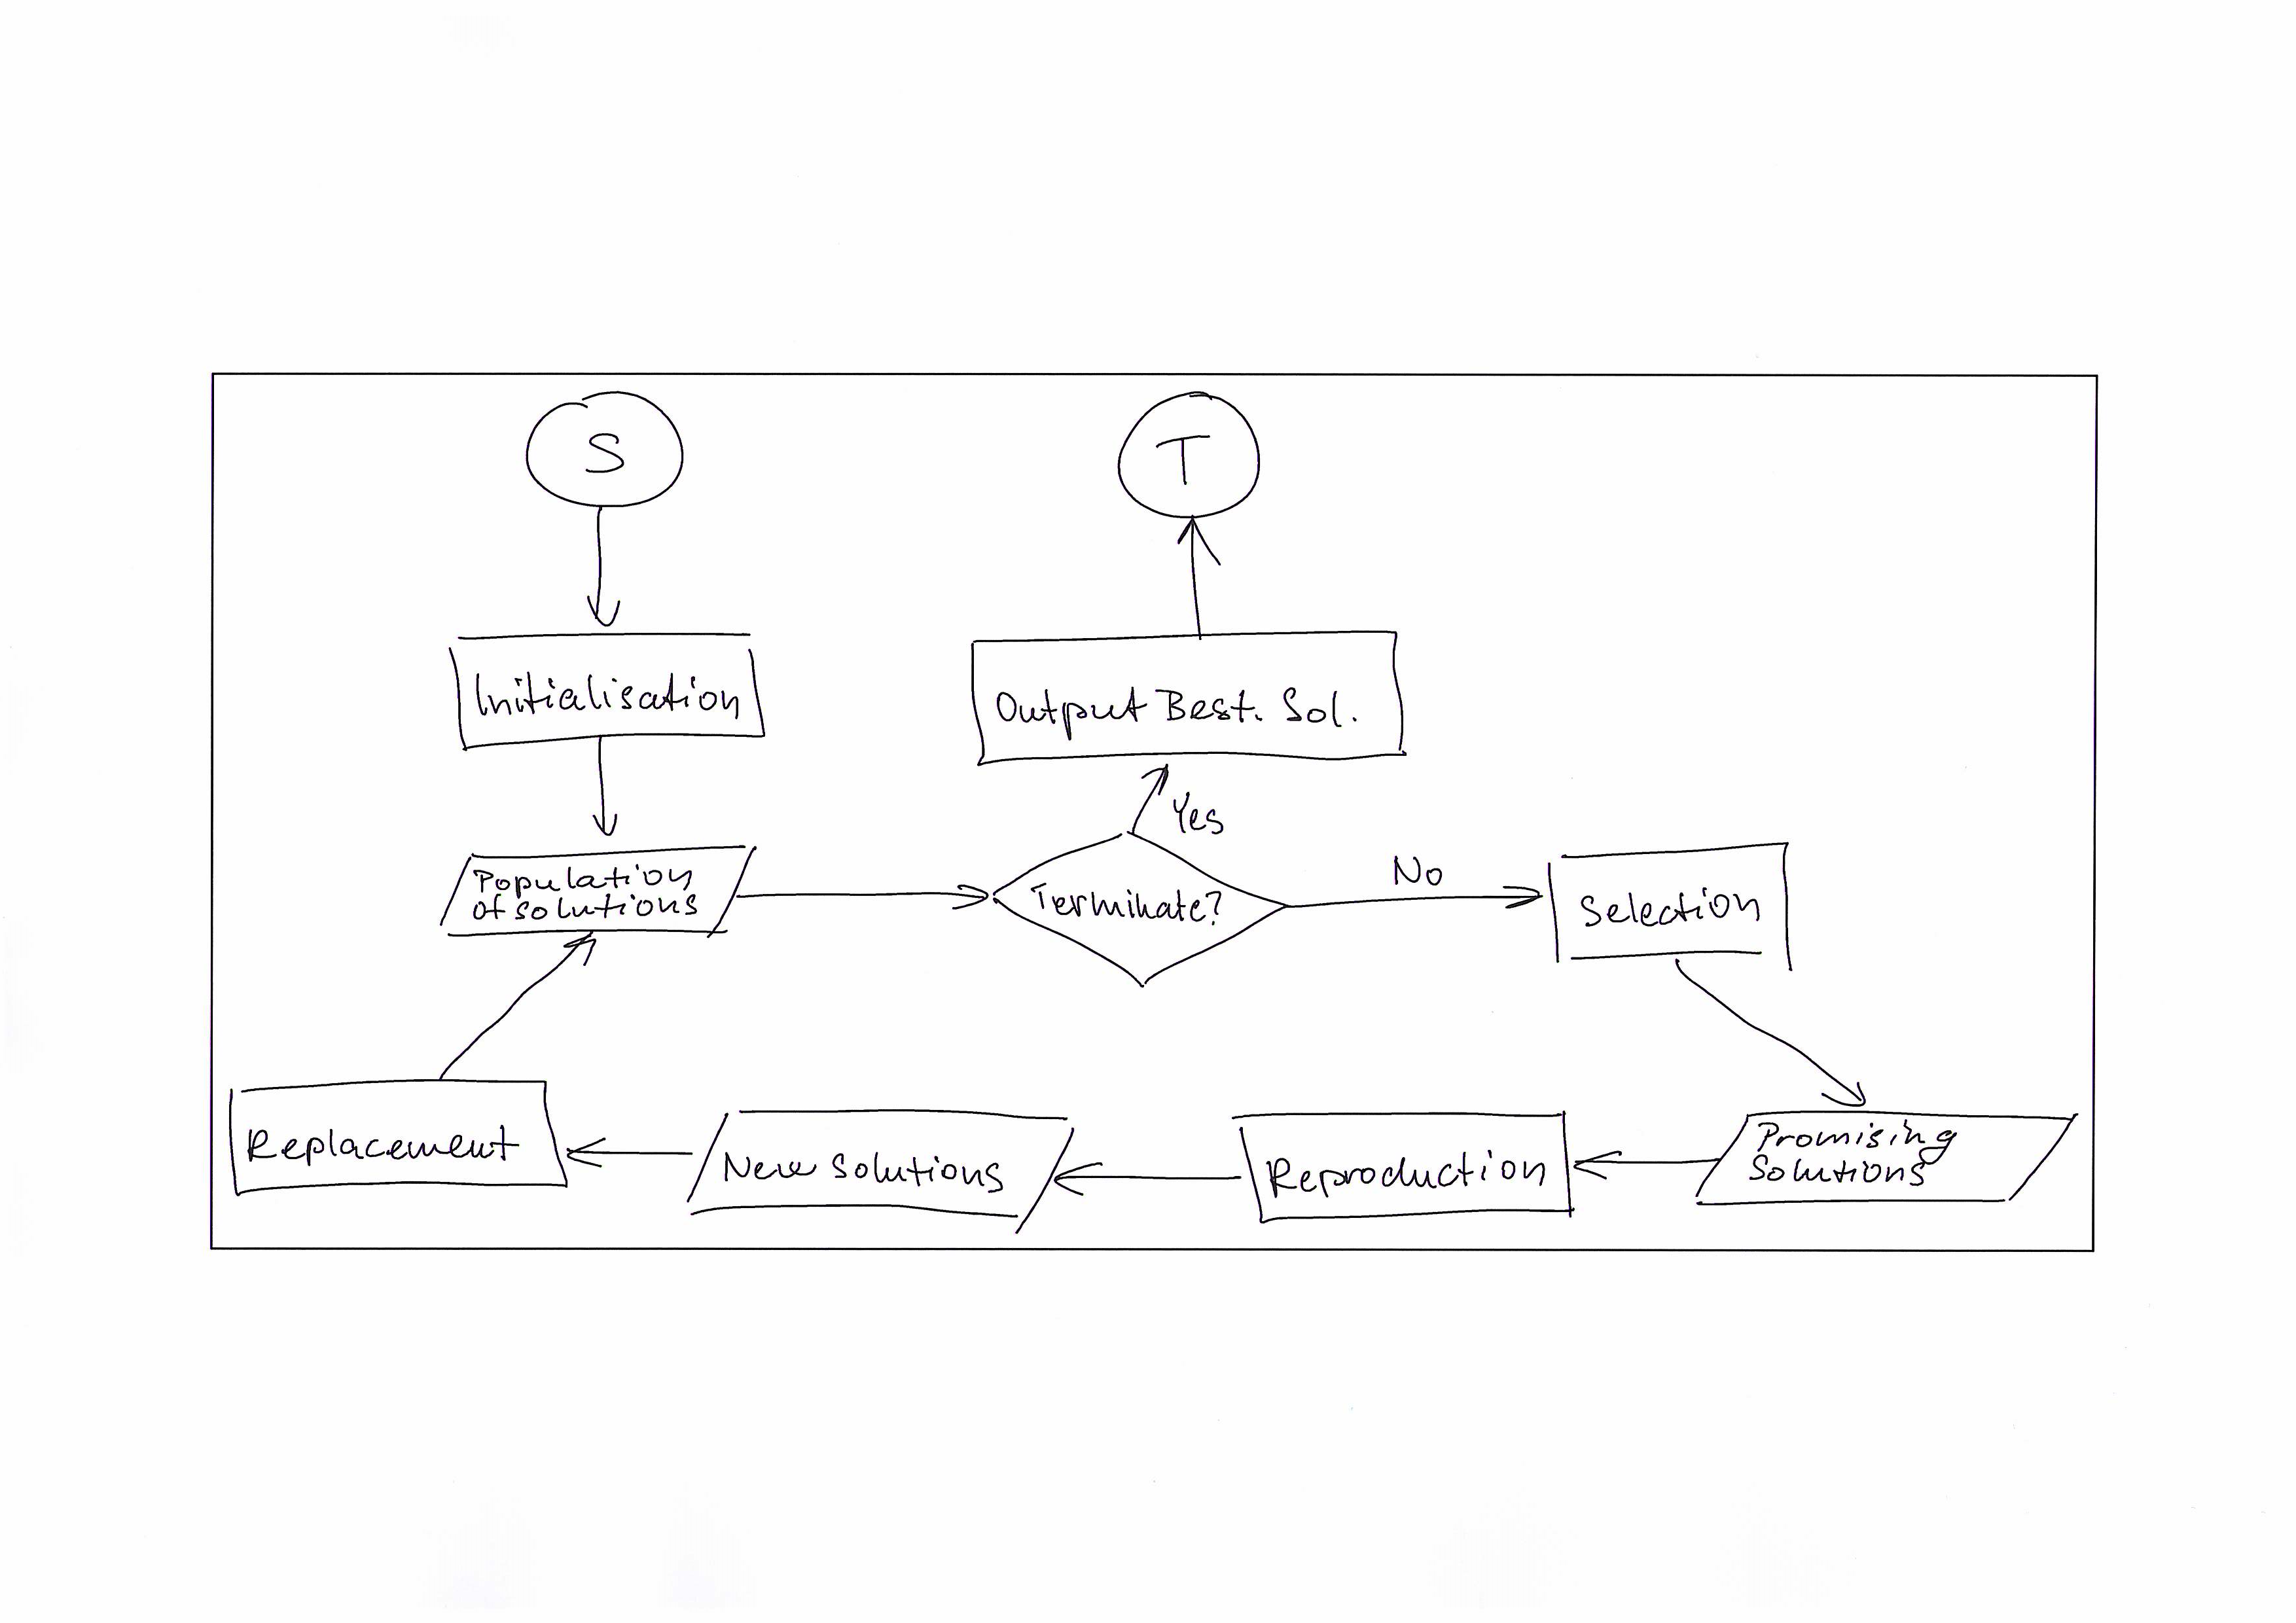 S
T
Initialisation
Output Best. Sol.
Yes
Population
of solutions
Terminate?
No
Selection
Replacement
New solutions
Reproduction
Promising
Solutions